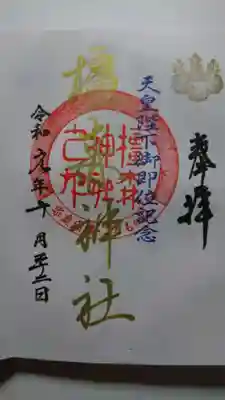 奉拝
天皇陛下御即位記念
橿森神社
橿森
神社
令和元年十月二十二日